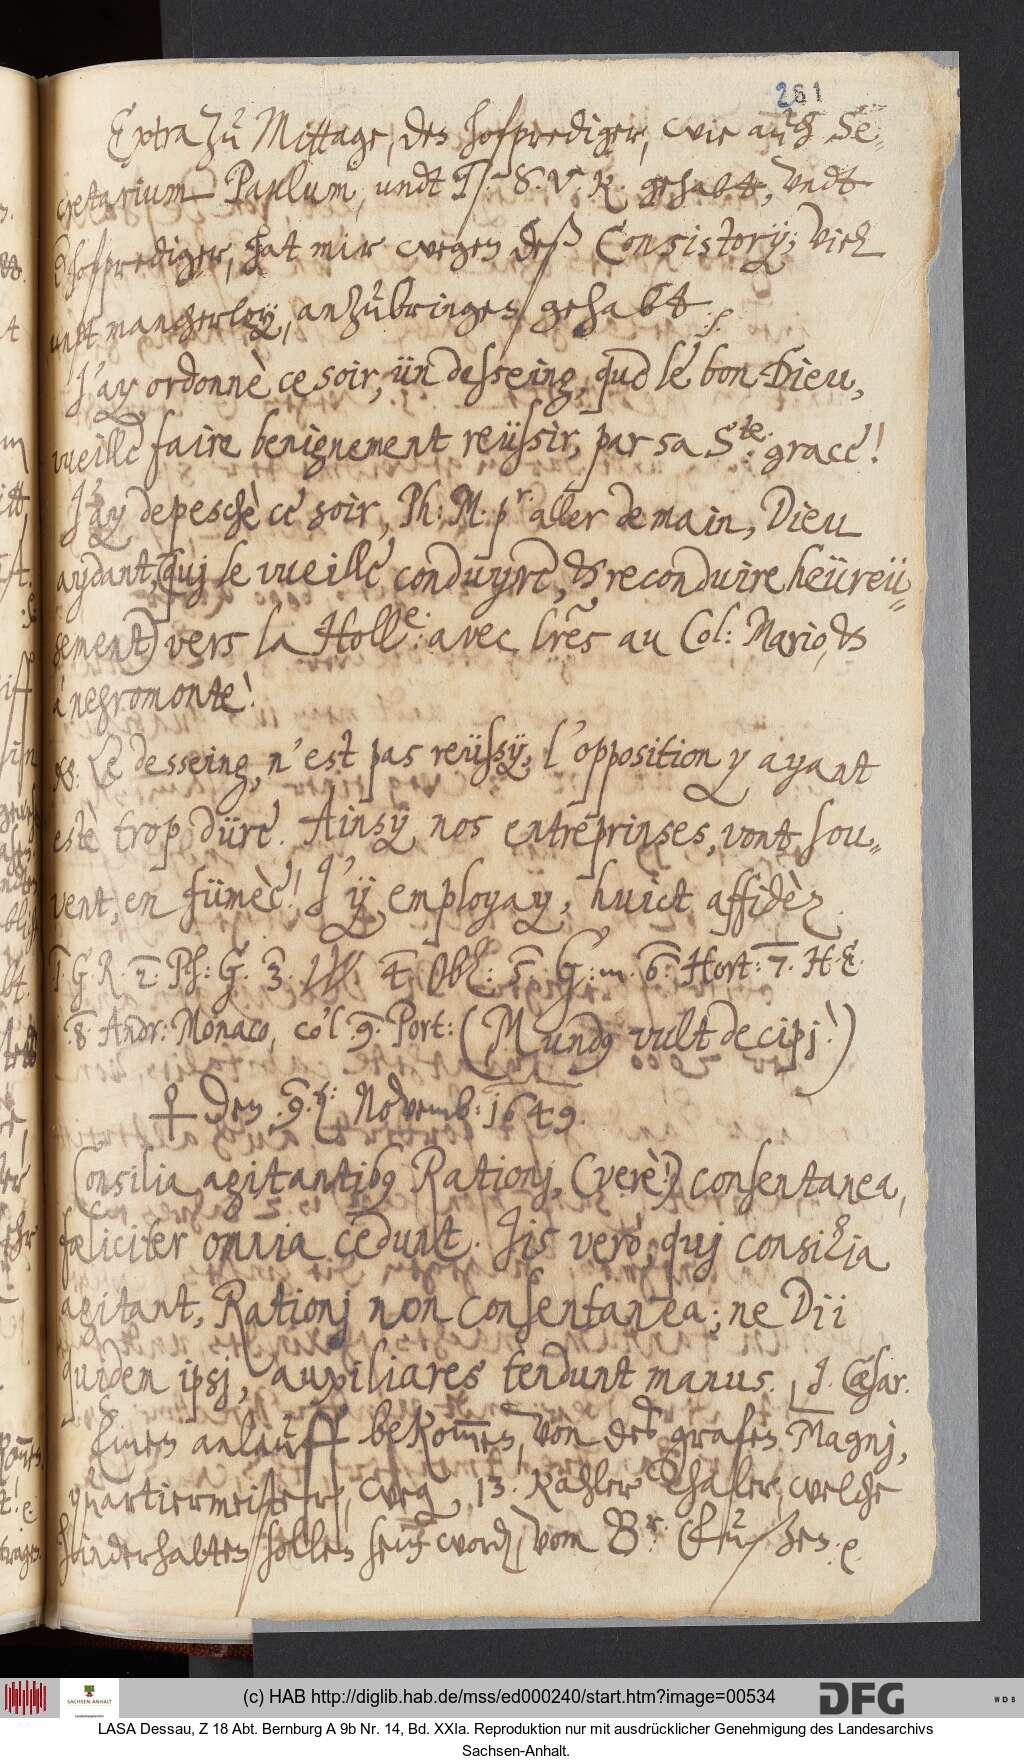 261
Extra zu Mittage, des hofprediger, wie auch Se„
cretarium Paulum, undt T. S. V. R. gehabtt, undt
hofprediger, hat mir wegen deß Consistorij; viel
undt mancherley, anzubringen gehabtt.
J'ay ordonnè ce soir, ün desseing, que le bon Dieu,
vueille faire benignement reüssir, par sa S.te grace!
J'ay depeschè ce soir, Ph: M. pr. aller demain, Dieu
aydant, (quj le vueille conduyre, & reconduire heüreü„
sement) vers la Holl.e avec lr̃es au Col: Mario, &
à negromonte!
&. Le desseing, n'est pas reüssy, l'opposition y ayant
estè trop düre. Ainsÿ nos entreprinses, vont sou„
vent, en fümèe! J'ÿ employay, huict affidèz
1 G R. 2. Ph: G. 3. 4 Obl: 5. G: m. 6. Hort: 7. H. E.
8. Andr: Monaco, co'l 9. Port: (Mundus vult decipj!)
den .9.t: Novemb: 1649.
Consilia agitantibus Rationj, (verè!) consentanea,
fœliciter omnia cedunt. Jis verò, quj consilia
agitant, Rationj non consentanea; ne Dii
quidem ipsj, auxiliares tendunt manus. J. Cæsar.
Einen anlauff bekom̃en, von des grafen Magnj,
quartiermeister, weg. 13. Kahler Thaler, welche
hinderhalten sollen sein word, vom Br: Geußen. e.
(c) HAB http://diglib.hab.de/mss/ed000240/start.htm?image=00534
SACHSEN-ANHALT
DFG
WDB
LASA Dessau, Z 18 Abt. Bernburg A 9b Nr. 14, Bd. XXIa. Reproduktion nur mit ausdrücklicher Genehmigung des Landesarchivs
Sachsen-Anhalt.